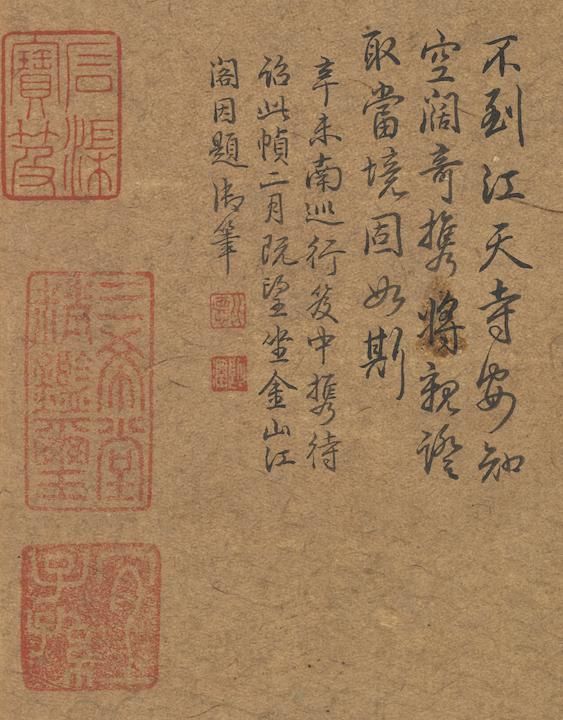 不到江天寺安知
空闊奇携將親證
取當境固如斯
辛未南巡行笈中携待
詔此幀二月既望坐金山江
閣因題御筆
石渠
寶笈
三希堂
精鑑璽
宜
子孫